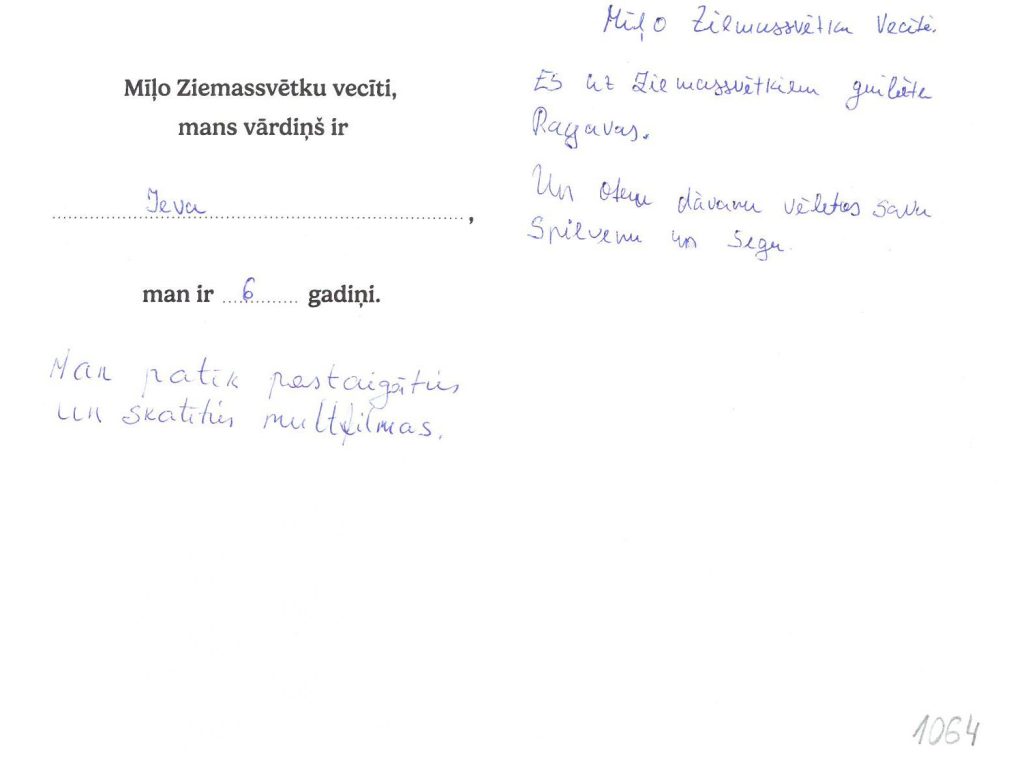 Mīļo Ziemassvētku vecīti,
mans vārdiņš ir
Ieva,
man ir 6 gadiņi.
Man patīk pastaigāties
un skatīties multfilmas.
Mīļo Ziemassvētku Vecīti.
Es uz Ziemassvētkiem gribētu
Ragavas.
Un otru dāvanu vēlētos savu
Spilvenu un Segu.
1064